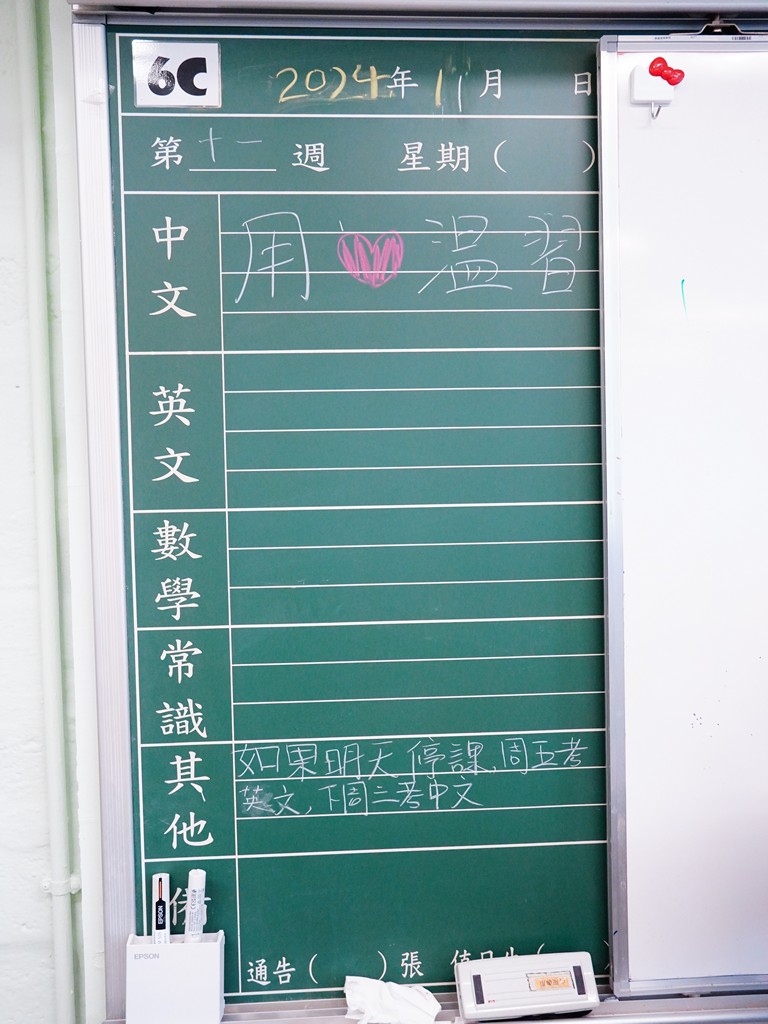 6C 2024年11月 日
第十一週 星期( )
中文
用 ♥ 温習
英文
數學
常識
其他
如果明天停課,周五考
英文,下周二考中文
EPSON
EPSON
通告( )張